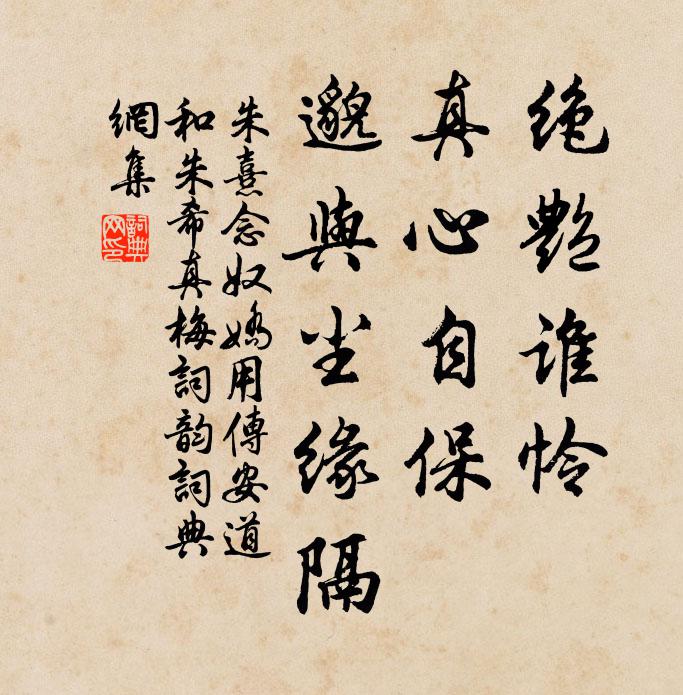 绝艳谁怜
真心自保
邈與尘缘隔
朱熹念奴嬌用傅安道
和朱希真梅詞韵詞典
網集
詞典網印